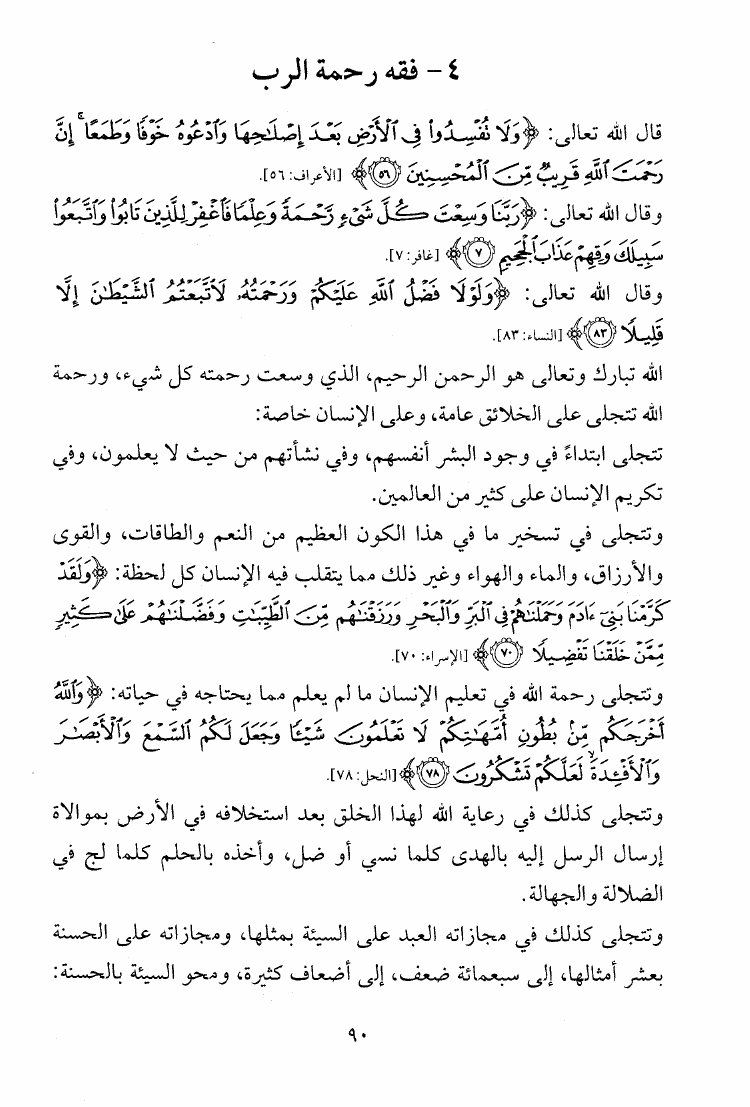 ٤- فقه رحمة الرب
قال الله تعالى: ﴿وَلَا نُفْسِدُوا۟ فِى ٱلْأَرْضِ بَعْدَ إِصْلَٰحِهَا وَٱدْعُوهُ خَوْفًا وَطَمَعًا ۚ إِنَّ
رَحْمَتَ ٱللَّهِ قَرِيبٌ مِّنَ ٱلْمُحْسِنِينَ ۝٥٦﴾ [الأعراف: ٥٦].
وقال الله تعالى: ﴿رَبَّنَا وَسِعْتَ كُلَّ شَىْءٍ رَّحْمَةً وَعِلْمًا فَٱغْفِرْ لِلَّذِينَ تَابُوا۟ وَٱتَّبَعُوا۟
سَبِيلَكَ وَقِهِمْ عَذَابَ ٱلْجَحِيمِ ۝٧﴾ [غافر: ٧].
وقال الله تعالى: ﴿وَلَوْلَا فَضْلُ ٱللَّهِ عَلَيْكُمْ وَرَحْمَتُهُۥ لَٱتَّبَعْتُمُ ٱلشَّيْطَٰنَ إِلَّا
قَلِيلًا ۝٨٣﴾ [النساء: ٨٣].
الله تبارك وتعالى هو الرحمن الرحيم، الذي وسعت رحمته كل شيء، ورحمة
الله تتجلى على الخلائق عامة، وعلى الإنسان خاصة:
تتجلى ابتداءً في وجود البشر أنفسهم، وفي نشأتهم من حيث لا يعلمون، وفي
تكريم الإنسان على كثير من العالمين.
وتتجلى في تسخير ما في هذا الكون العظيم من النعم والطاقات، والقوى
والأرزاق، والماء والهواء وغير ذلك مما يتقلب فيه الإنسان كل لحظة: ﴿وَلَقَدْ
كَرَّمْنَا بَنِىٓ ءَادَمَ وَحَمَلْنَٰهُمْ فِى ٱلْبَرِّ وَٱلْبَحْرِ وَرَزَقْنَٰهُم مِّنَ ٱلطَّيِّبَٰتِ وَفَضَّلْنَٰهُمْ عَلَىٰ كَثِيرٍ
مِّمَّنْ خَلَقْنَا تَفْضِيلًا ۝٧٠﴾ [الإسراء: ٧٠].
وتتجلى رحمة الله في تعليم الإنسان ما لم يعلم مما يحتاجه في حياته: ﴿وَٱللَّهُ
أَخْرَجَكُم مِّنۢ بُطُونِ أُمَّهَٰتِكُمْ لَا تَعْلَمُونَ شَيْـًٔا وَجَعَلَ لَكُمُ ٱلسَّمْعَ وَٱلْأَبْصَٰرَ
وَٱلْأَفْـِٔدَةَ ۙ لَعَلَّكُمْ تَشْكُرُونَ ۝٧٨﴾ [النحل: ٧٨].
وتتجلى كذلك في رعاية الله لهذا الخلق بعد استخلافه في الأرض بموالاة
إرسال الرسل إليه بالهدى كلما نسي أو ضل، وأخذه بالحلم كلما لج في
الضلالة والجهالة.
وتتجلى كذلك في مجازاته العبد على السيئة بمثلها، ومجازاته على الحسنة
بعشر أمثالها، إلى سبعمائة ضعف، إلى أضعاف كثيرة، ومحو السيئة بالحسنة:
٩٠